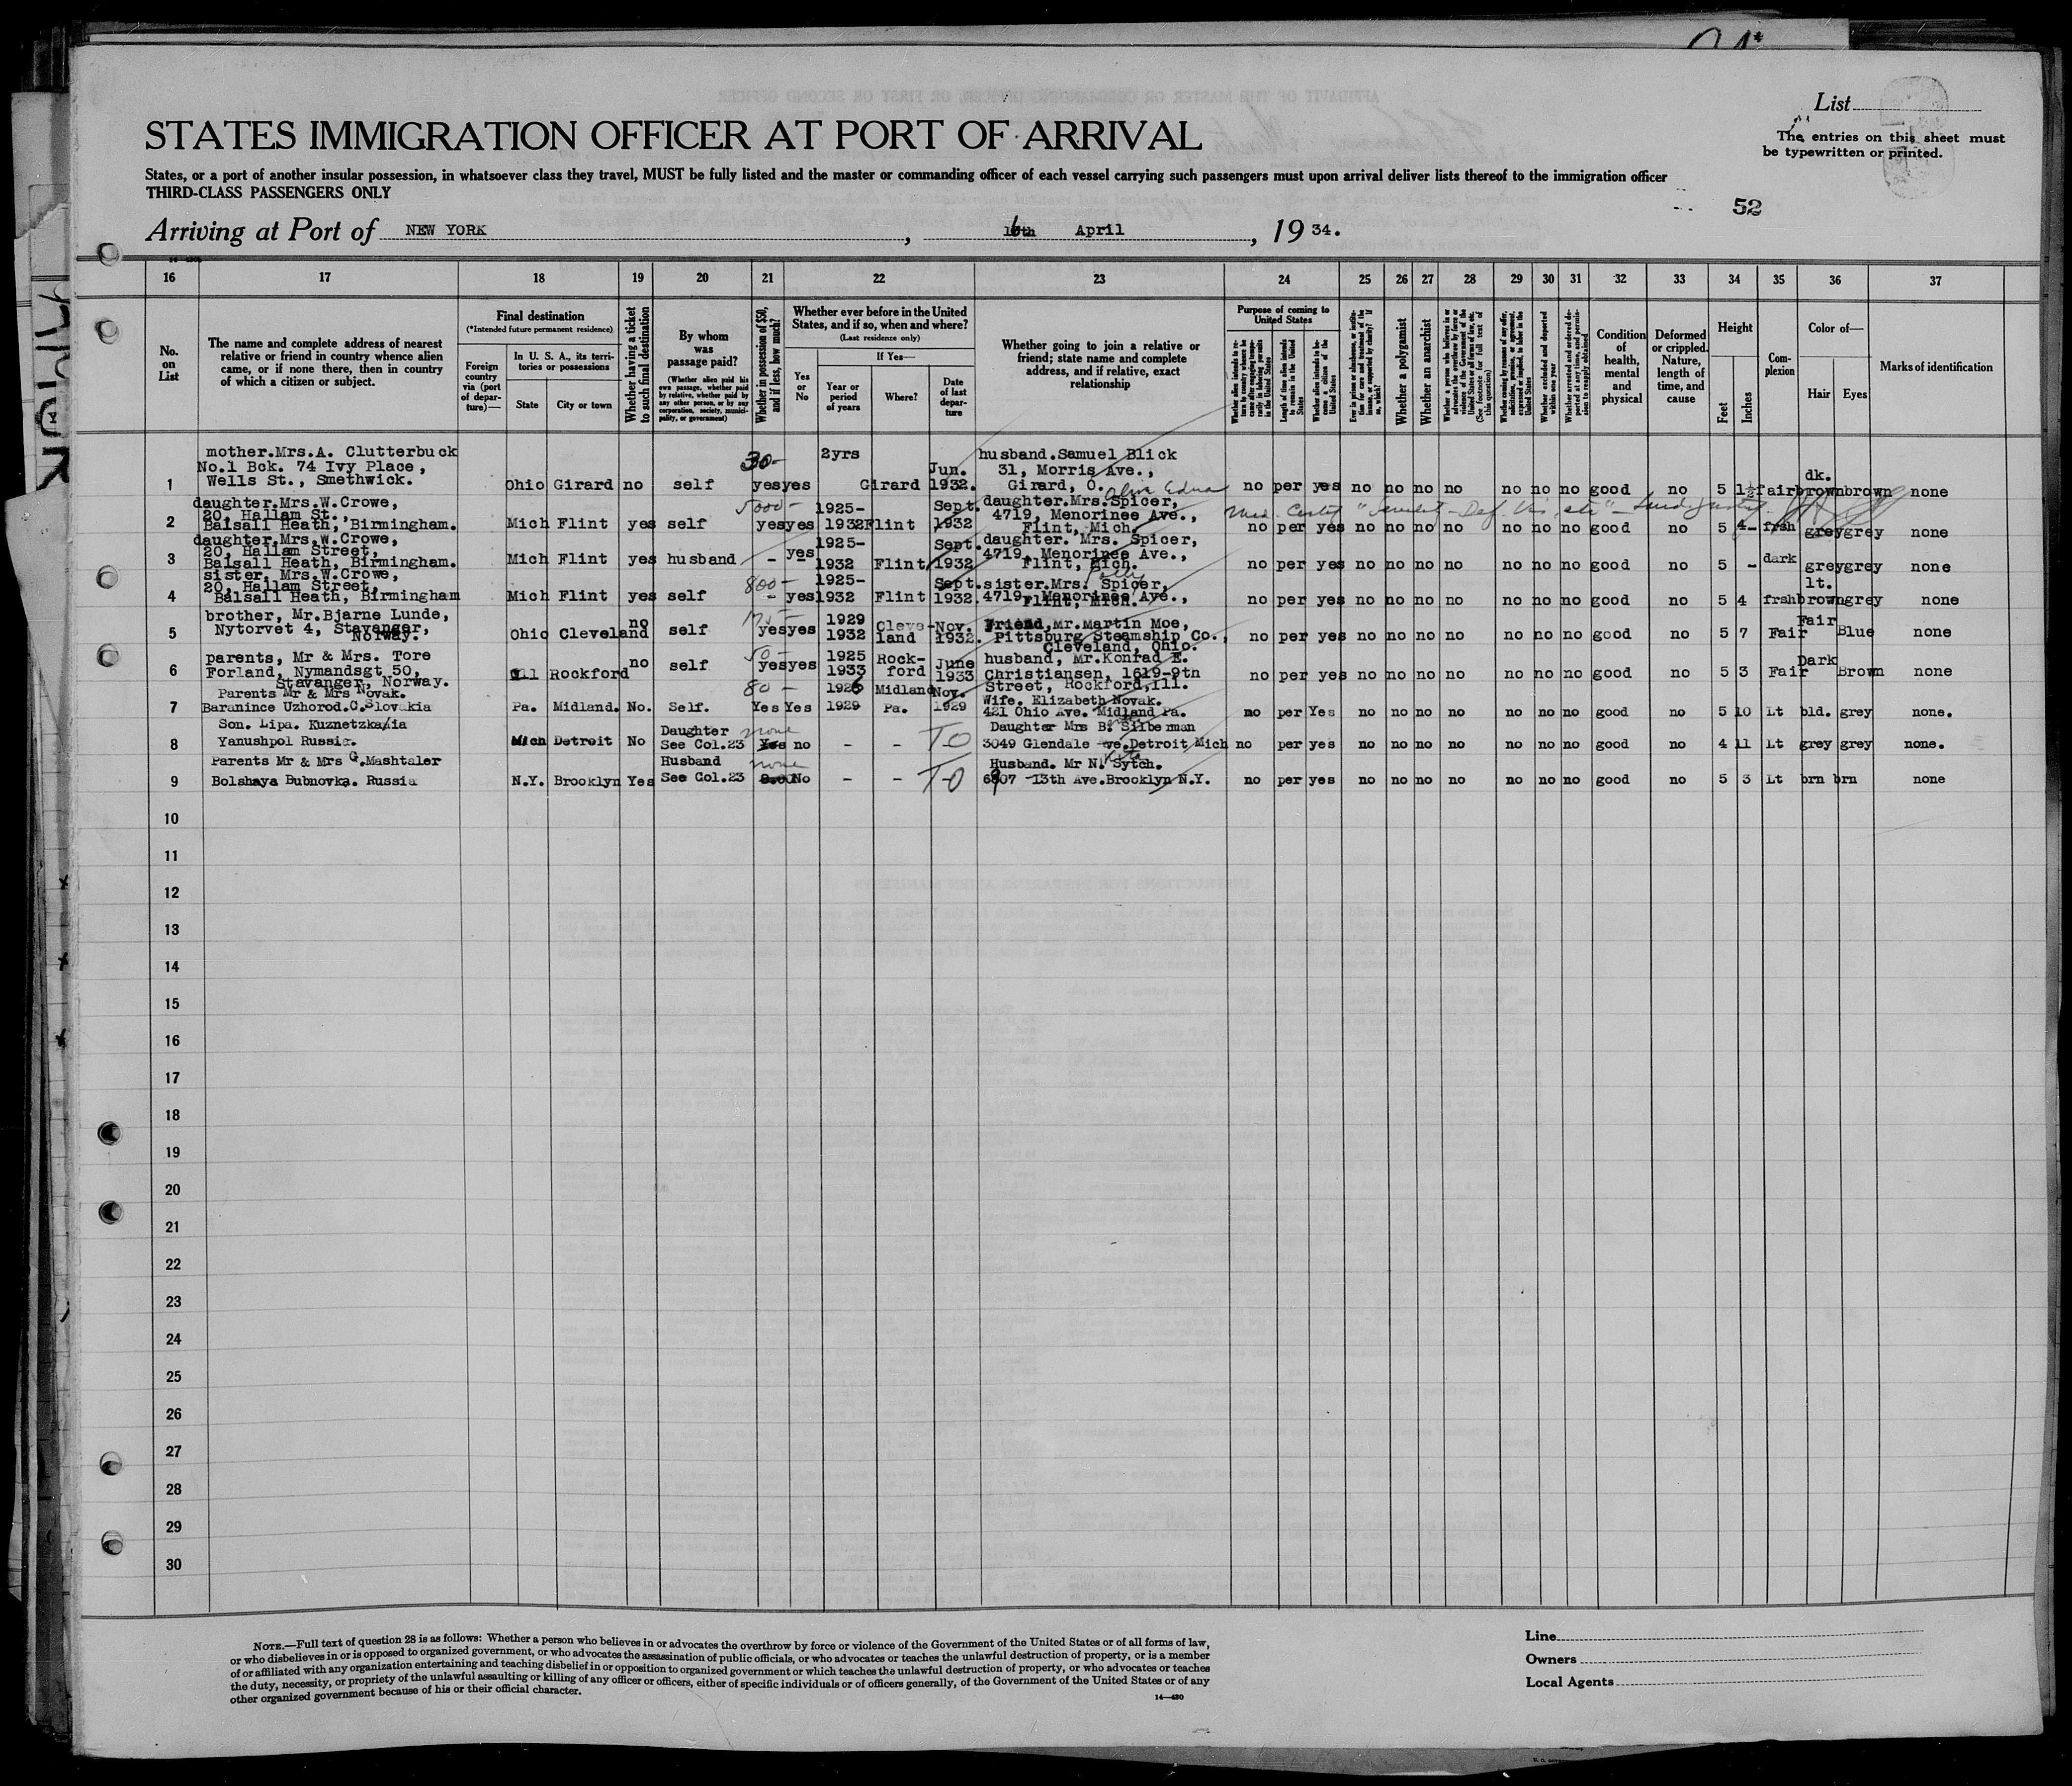 List
The entries on this sheet must
be typewritten or printed.
STATES IMMIGRATION OFFICER AT PORT OF ARRIVAL
States, or a port of another insular possession, in whatsoever class they travel, MUST be fully listed and the master or commanding officer of each vessel carrying such passengers must upon arrival deliver lists thereof to the immigration officer
THIRD-CLASS PASSENGERS ONLY
52
Arriving at Port of NEW YORK, April, 19 34.
16 17 18 19 20 21 22 23 24 25 26 27 28 29 30 31 32 33 34 35 36 37
No. on List
The name and complete address of nearest relative or friend in country whence alien came, or if none there, then in country of which a citizen or subject.
Final destination
(*Intended future permanent residence)
Foreign country via (port of departure)—
In U. S. A., its territories or possessions
State
City or town
Whether having a ticket to such final destination
By whom was passage paid?
(Whether alien paid his own passage, whether paid by relative, whether paid by any other person, or by any corporation, society, municipality, or government)
Whether in possession of $50, and if less, how much?
Whether ever before in the United States, and if so, when and where?
(Last residence only)
Yes or No
If Yes—
Year or period of years
Where?
Date of last departure
Whether going to join a relative or friend; state name and complete address, and if relative, exact relationship
Purpose of coming to United States
Length of time alien intends to remain in the United States
Whether alien intends to become a citizen of the United States
Whether a polygamist
Whether an anarchist
Condition of health, mental and physical
Deformed or crippled. Nature, length of time, and cause
Height
Feet
Inches
Complexion
Color of—
Hair
Eyes
Marks of identification
1 mother.Mrs.A. Clutterbuck No.1 Bck. 74 Ivy Place, Wells St., Smethwick. Ohio Girard no self 30- yes yes 2yrs Girard Jun. 1932. husband.Samuel Blick 31, Morris Ave., Girard, O. no per yes no no no no no no no good no 5 1½ fair dk. brown brown none
2 daughter.Mrs.W.Crowe, 20, Hallam St., Balsall Heath, Birmingham. Mich Flint yes self 5000- yes yes 1925-1932 Flint Sept. 1932 daughter.Mrs.Spicer, 4719, Menorinee Ave., Flint, Mich. no per yes no no no no no no no good no 5 4- frsh grey grey none
3 daughter.Mrs.W.Crowe, 20, Hallam Street, Balsall Heath, Birmingham. Mich Flint yes husband - yes 1925-1932 Flint Sept. 1932 daughter. Mrs. Spicer, 4719, Menorinee Ave., Flint, Mich. no per yes no no no no no no no good no 5 - dark grey grey none
4 sister, Mrs.W.Crowe, 20, Hallam Street, Balsall Heath, Birmingham Mich Flint yes self 800- - yes 1925-1932 Flint Sept. 1932. sister.Mrs. Spicer, 4719, Menorinee Ave., Flint, Mich. no per yes no no no no no no no good no 5 4 frsh lt. brown grey none
5 brother, Mr.Bjarne Lunde, Nytorvet 4, Stavanger, Norway. Ohio Cleveland no self yes yes 1929 1932 Cleveland Nov. 1932. Friend,Mr.Martin Moe, Pittsburg Steamship Co., Cleveland, Ohio. no per yes no no no no no no no good no 5 7 Fair Fair Blue none
6 parents, Mr & Mrs. Tore Forland, Nymandsgt 50, Stavanger, Norway. Ill Rockford no self 50- yes yes 1925 1933 Rock-ford June 1933 husband, Mr.Konrad E. Christiansen, 1619-9th Street, Rockford,Ill. no per yes no no no no no no no good no 5 3 Fair Dark Brown none
7 Parents Mr & Mrs Novak. Baranince Uzhorod.C.Slovakia Pa. Midland. No. Self. 80 - Yes Yes 1926 1929 Midland Pa. Nov. 1929 Wife. Elizabeth Novak. 421 Ohio Ave. Midland Pa. no per Yes no no no no no no no good no 5 10 Lt bld. grey none.
8 Son. Lipa. Kuznetzkaia Yanushpol Russia. Mich Detroit No Daughter See Col.23 none Yes no - - TO Daughter Mrs B. Silberman 3049 Glendale ve.Detroit Mich no per yes no no no no no no no good no 4 11 Lt grey grey none.
9 Parents Mr & Mrs G.Mashtaler Bolshaya Bubnovka. Russia N.Y. Brooklyn Yes Husband See Col.23 none No - - TO Husband. Mr N. Sytch. 6807 -13th Ave.Brooklyn N.Y. no per yes no no no no no no no good no 5 3 Lt brn brn none
10
11
12
13
14
15
16
17
18
19
20
21
22
23
24
25
26
27
28
29
30
NOTE.—Full text of question 28 is as follows: Whether a person who believes in or advocates the overthrow by force or violence of the Government of the United States or of all forms of law,
or who disbelieves in or is opposed to organized government, or who advocates the assassination of public officials, or who advocates or teaches the unlawful destruction of property, or is a member
of or affiliated with any organization entertaining and teaching disbelief in or opposition to organized government or which teaches the unlawful destruction of property, or who advocates or teaches
the duty, necessity, or propriety of the unlawful assaulting or killing of any officer or officers, either of specific individuals or of officers generally, of the Government of the United States or of any
other organized government because of his or their official character.
14—430
Line
Owners
Local Agents